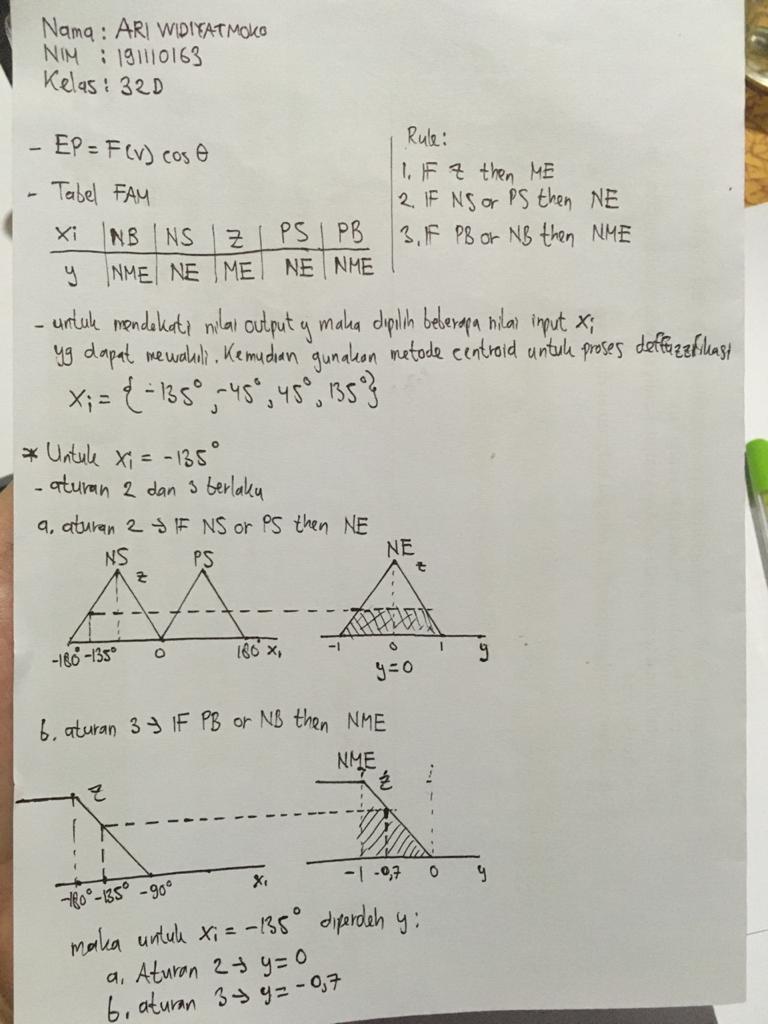 Nama : ARI WIDIYATMOKO
NIM : 191110163
Kelas : 32D
- EP = F(v) cos θ
- Tabel FAM
Xi | NB | NS | Z | PS | PB
y | NME | NE | ME | NE | NME
Rule:
1. IF Z then ME
2. IF NS or PS then NE
3. IF PB or NB then NME
- untuk mendekati nilai output y maka dipilih beberapa nilai input Xi
yg dapat mewakili. Kemudian gunakan metode centroid untuk proses deffuzzifikasi
Xi = {-135°, -45°, 45°, 135°}
* Untuk Xi = -135°
- aturan 2 dan 3 berlaku
a. aturan 2 → IF NS or PS then NE
NS PS NE
z z
-180° -135° 0 180° Xi -1 0 1 y
y=0
b. aturan 3 → IF PB or NB then NME
NME
z z
-180° -135° -90° Xi -1 -0,7 0 y
maka untuk Xi = -135° diperoleh y :
a. Aturan 2 → y = 0
b. aturan 3 → y = -0,7